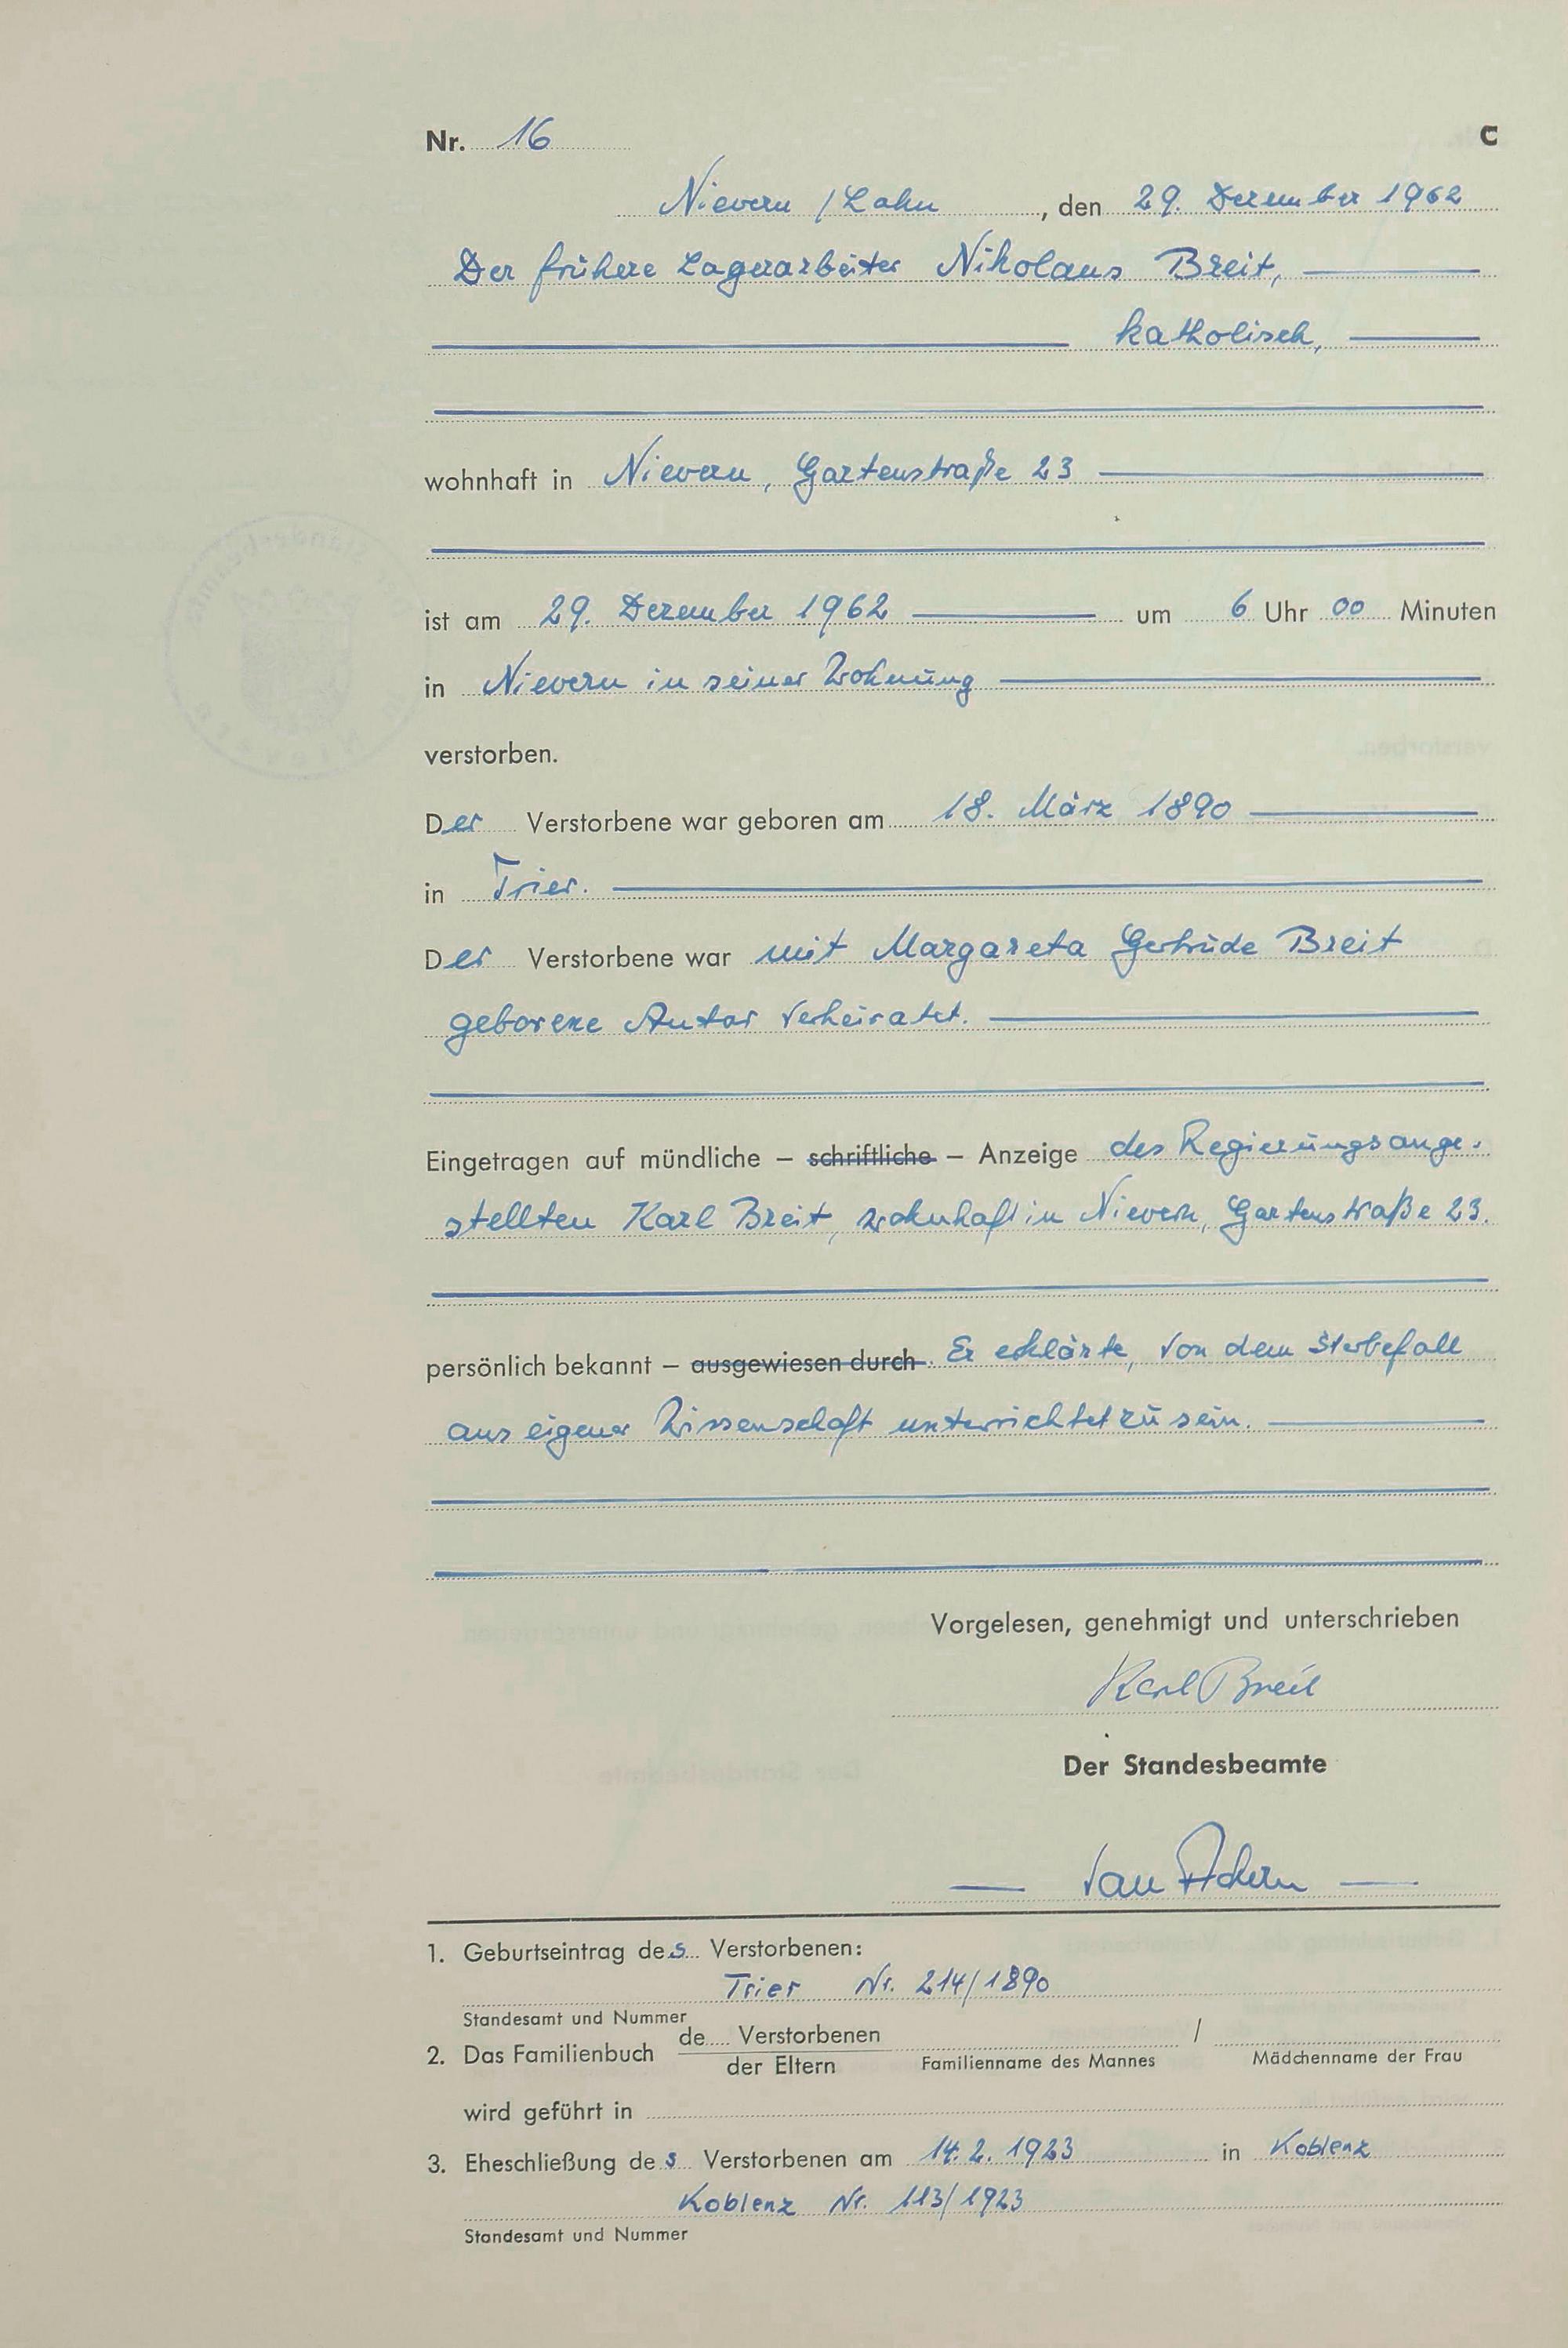 Nr. 16 C
Nievern / Lahn, den 29. Dezember 1962
Der frühere Lagerarbeiter Nikolaus Breit,
katholisch,
wohnhaft in Nievern, Gartenstraße 23
ist am 29. Dezember 1962 um 6 Uhr 00 Minuten
in Nievern in seiner Wohnung
verstorben.
Der Verstorbene war geboren am 18. März 1890
in Trier.
Der Verstorbene war mit Margareta Gertrude Breit
geborene Antar verheiratet.
Eingetragen auf mündliche – schriftliche – Anzeige des Regierungsange-
stellten Karl Breit, wohnhaft in Nievern, Gartenstraße 23.
persönlich bekannt – ausgewiesen durch. Er erklärte, von dem Sterbefall
aus eigener Wissenschaft unterrichtet zu sein.
Vorgelesen, genehmigt und unterschrieben
Karl Breit
Der Standesbeamte
1. Geburtseintrag des Verstorbenen:
Trier Nr. 214/1890
Standesamt und Nummer
2. Das Familienbuch de Verstorbenen /
der Eltern Familienname des Mannes Mädchenname der Frau
wird geführt in
3. Eheschließung des Verstorbenen am 14. 2. 1923 in Koblenz
Koblenz Nr. 113/1923
Standesamt und Nummer